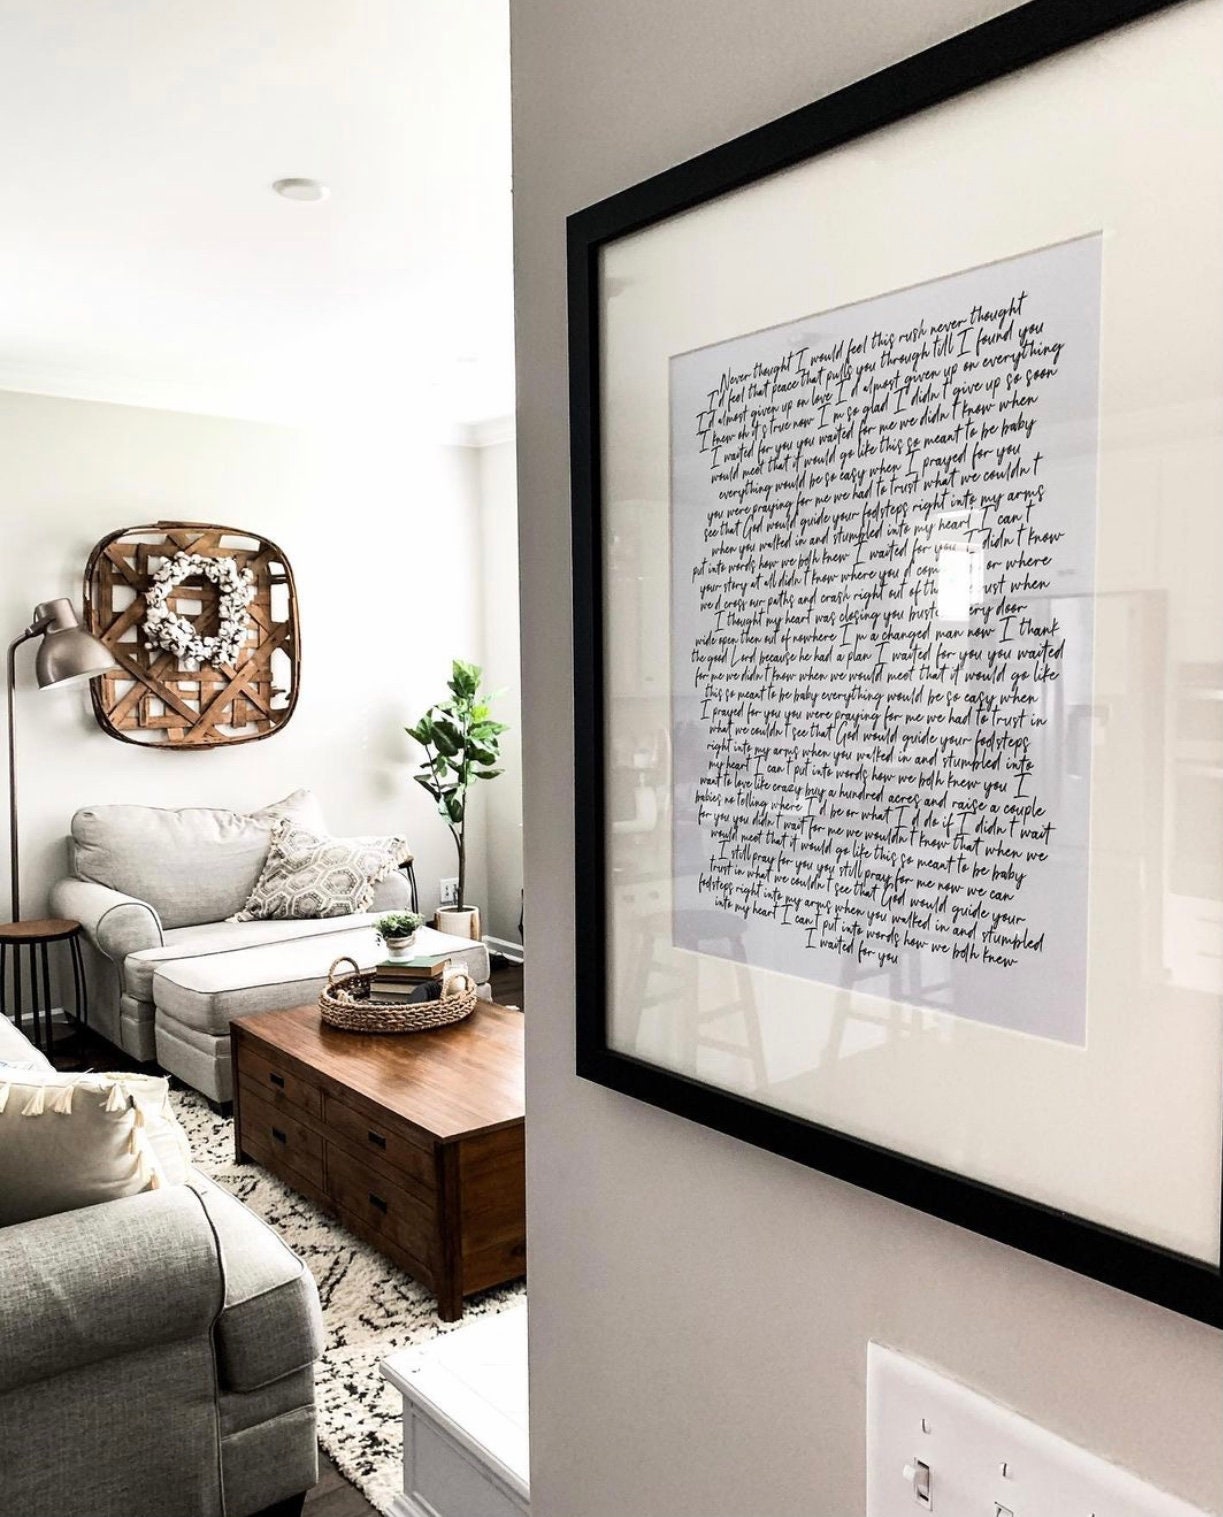 Never thought I would feel this rush never thought
I'd feel that peace that pulls you through till I found you
I'd almost given up on love I'd almost given up on everything
I knew oh it's true now I'm so glad I didn't give up so soon
I waited for you you waited for me we didn't know when
would meet that it would go like this so meant to be baby
everything would be so easy when I prayed for you
you were praying for me we had to trust what we couldn't
see that God would guide your footsteps right into my arms
when you walked in and stumbled into my heart I can't
put into words how we both knew I waited for you I didn't know
your story at all didn't know where you'd or where
we'd cross our paths and crash right out of just when
I thought my heart was closing you door
wide open then out of nowhere I'm a changed man now I thank
the good Lord because he had a plan I waited for you you waited
for me we didn't know when we would meet that it would go like
this so meant to be baby everything would be so easy when
I prayed for you you were praying for me we had to trust in
what we couldn't see that God would guide your footsteps
right into my arms when you walked in and stumbled into
my heart I can't put into words how we both knew you I
want to love like crazy buy a hundred acres and raise a couple
babies no telling where I'd be or what I'd do if I didn't wait
for you you didn't wait for me we wouldn't know that when we
would meet that it would go like this so meant to be baby
I still pray for you you still pray for me now we can
trust in what we couldn't see that God would guide your
footsteps right into my arms when you walked in and stumbled
into my heart I can't put into words how we both knew
I waited for you